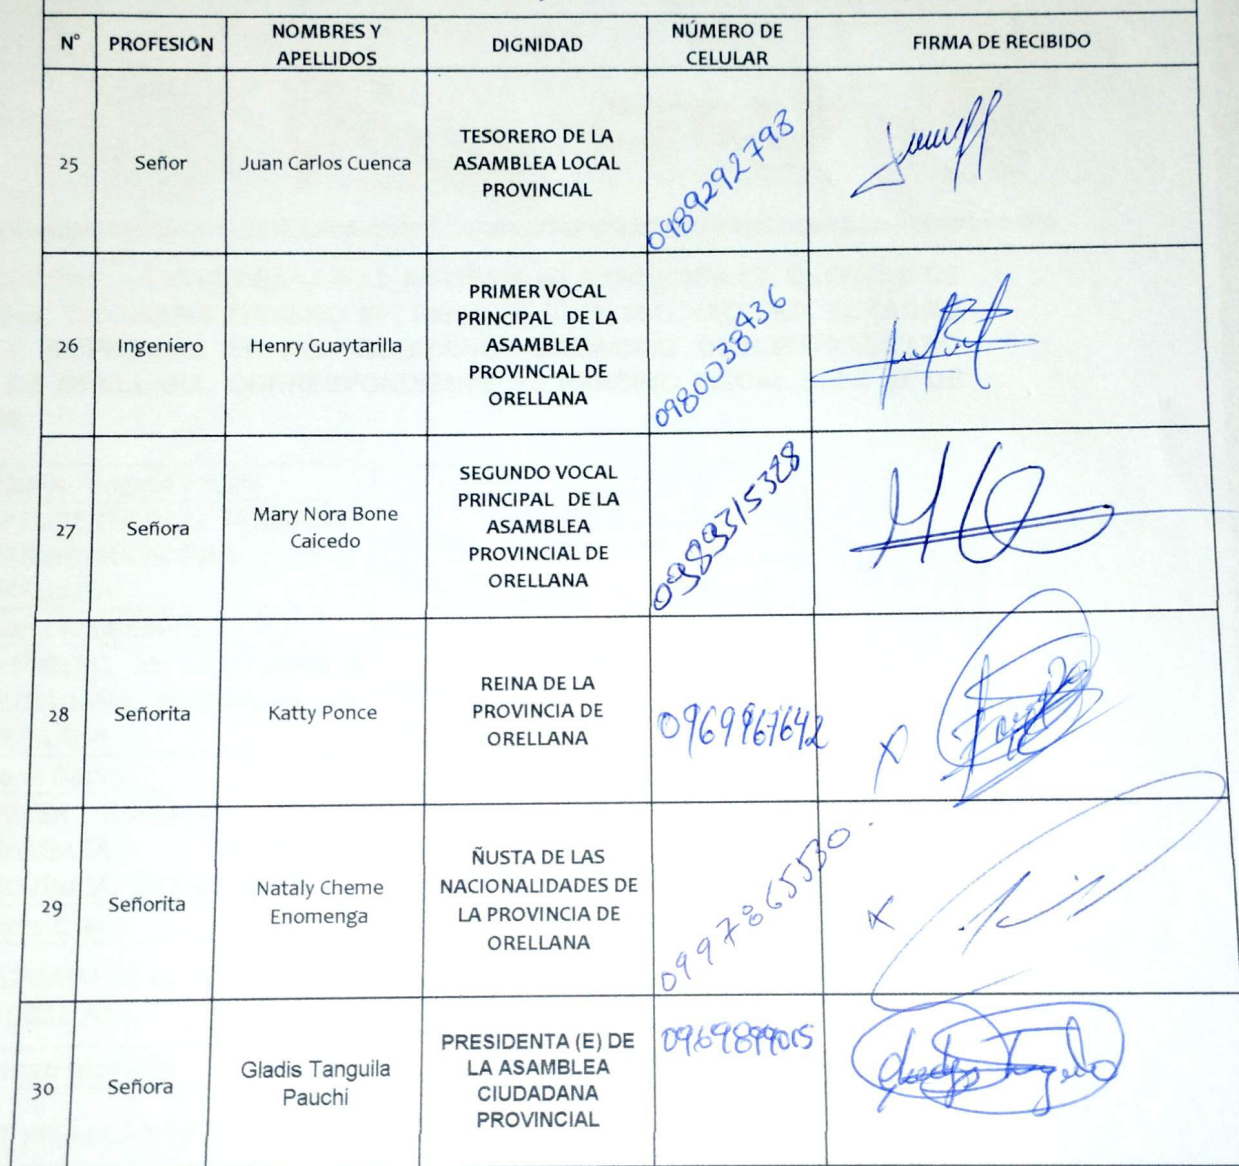 N° PROFESIÓN NOMBRES Y DIGNIDAD NÚMERO DE FIRMA DE RECIBIDO
APELLIDOS CELULAR
25 Señor Juan Carlos Cuenca
TESORERO DE LA
ASAMBLEA LOCAL
PROVINCIAL
0989292798
26 Ingeniero Henry Guaytarilla
PRIMER VOCAL
PRINCIPAL DE LA
ASAMBLEA
PROVINCIAL DE
ORELLANA
0980038436
27 Señora
Mary Nora Bone
Caicedo
SEGUNDO VOCAL
PRINCIPAL DE LA
ASAMBLEA
PROVINCIAL DE
ORELLANA
0989315328
28 Señorita Katty Ponce
REINA DE LA
PROVINCIA DE
ORELLANA
0969967642
29 Señorita
Nataly Cheme
Enomenga
ÑUSTA DE LAS
NACIONALIDADES DE
LA PROVINCIA DE
ORELLANA
0997865530
30 Señora
Gladis Tanguila
Pauchi
PRESIDENTA (E) DE
LA ASAMBLEA
CIUDADANA
PROVINCIAL